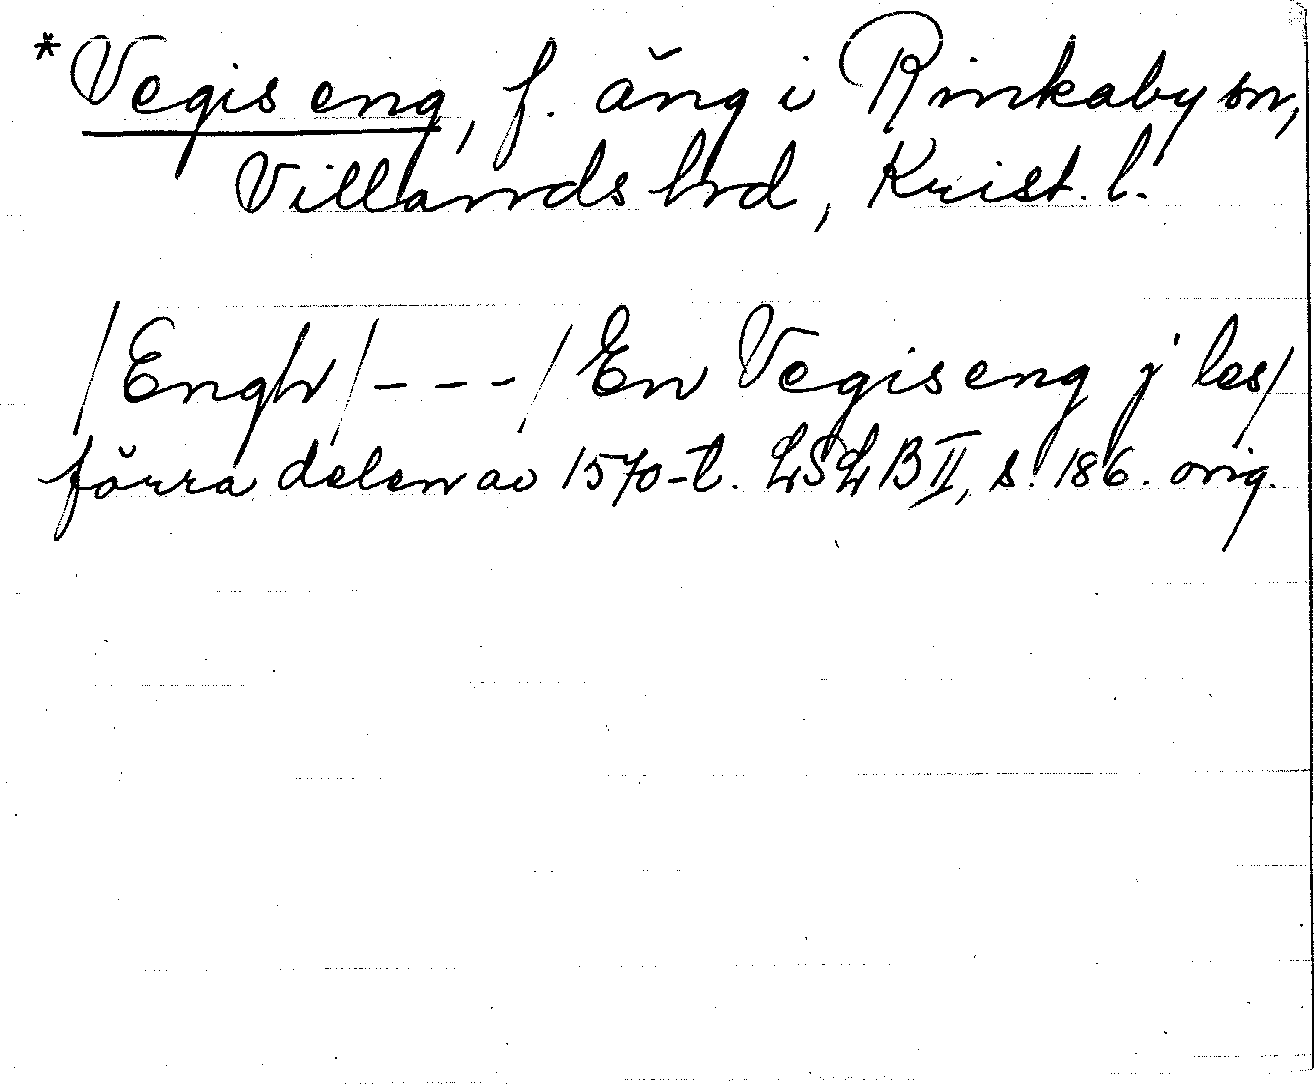 *Vegis eng, f. äng i Rinkaby sn,
Villands hrd, Krist. l.
/Engh/---/En Vegis eng j les/
förra delen av 1570-t. LSLB II, s. 186. orig.